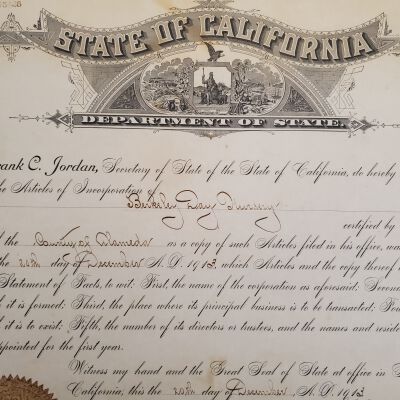 STATE OF CALIFORNIA
DEPARTMENT OF STATE.
rank C. Jordan, Secretary of State of the State of California, do hereby
he Articles of Incorporation of
Berkeley Day Nursery
certified by
f the County of Alameda as a copy of such Articles filed in his office, wa
the 20th day of December A. D. 1913, which Articles and the copy thereof
Statement of Facts, to wit: First, the name of the corporation as aforesaid; Secon
it is formed; Third, the place where its principal business is to be transacted; Fou
it is to exist; Fifth, the number of its directors or trustees, and the names and reside
ppointed for the first year.
Witness my hand and the Great Seal of State at office in
California, this the 20th day of December, A. D. 1913